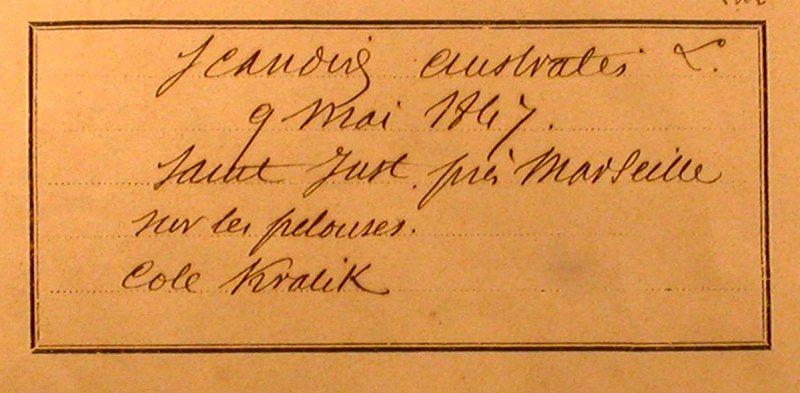 Scandix australis L.
9 Mai 1847.
Saint Just près Marseille
sur les pelouses.
Cole Kralik